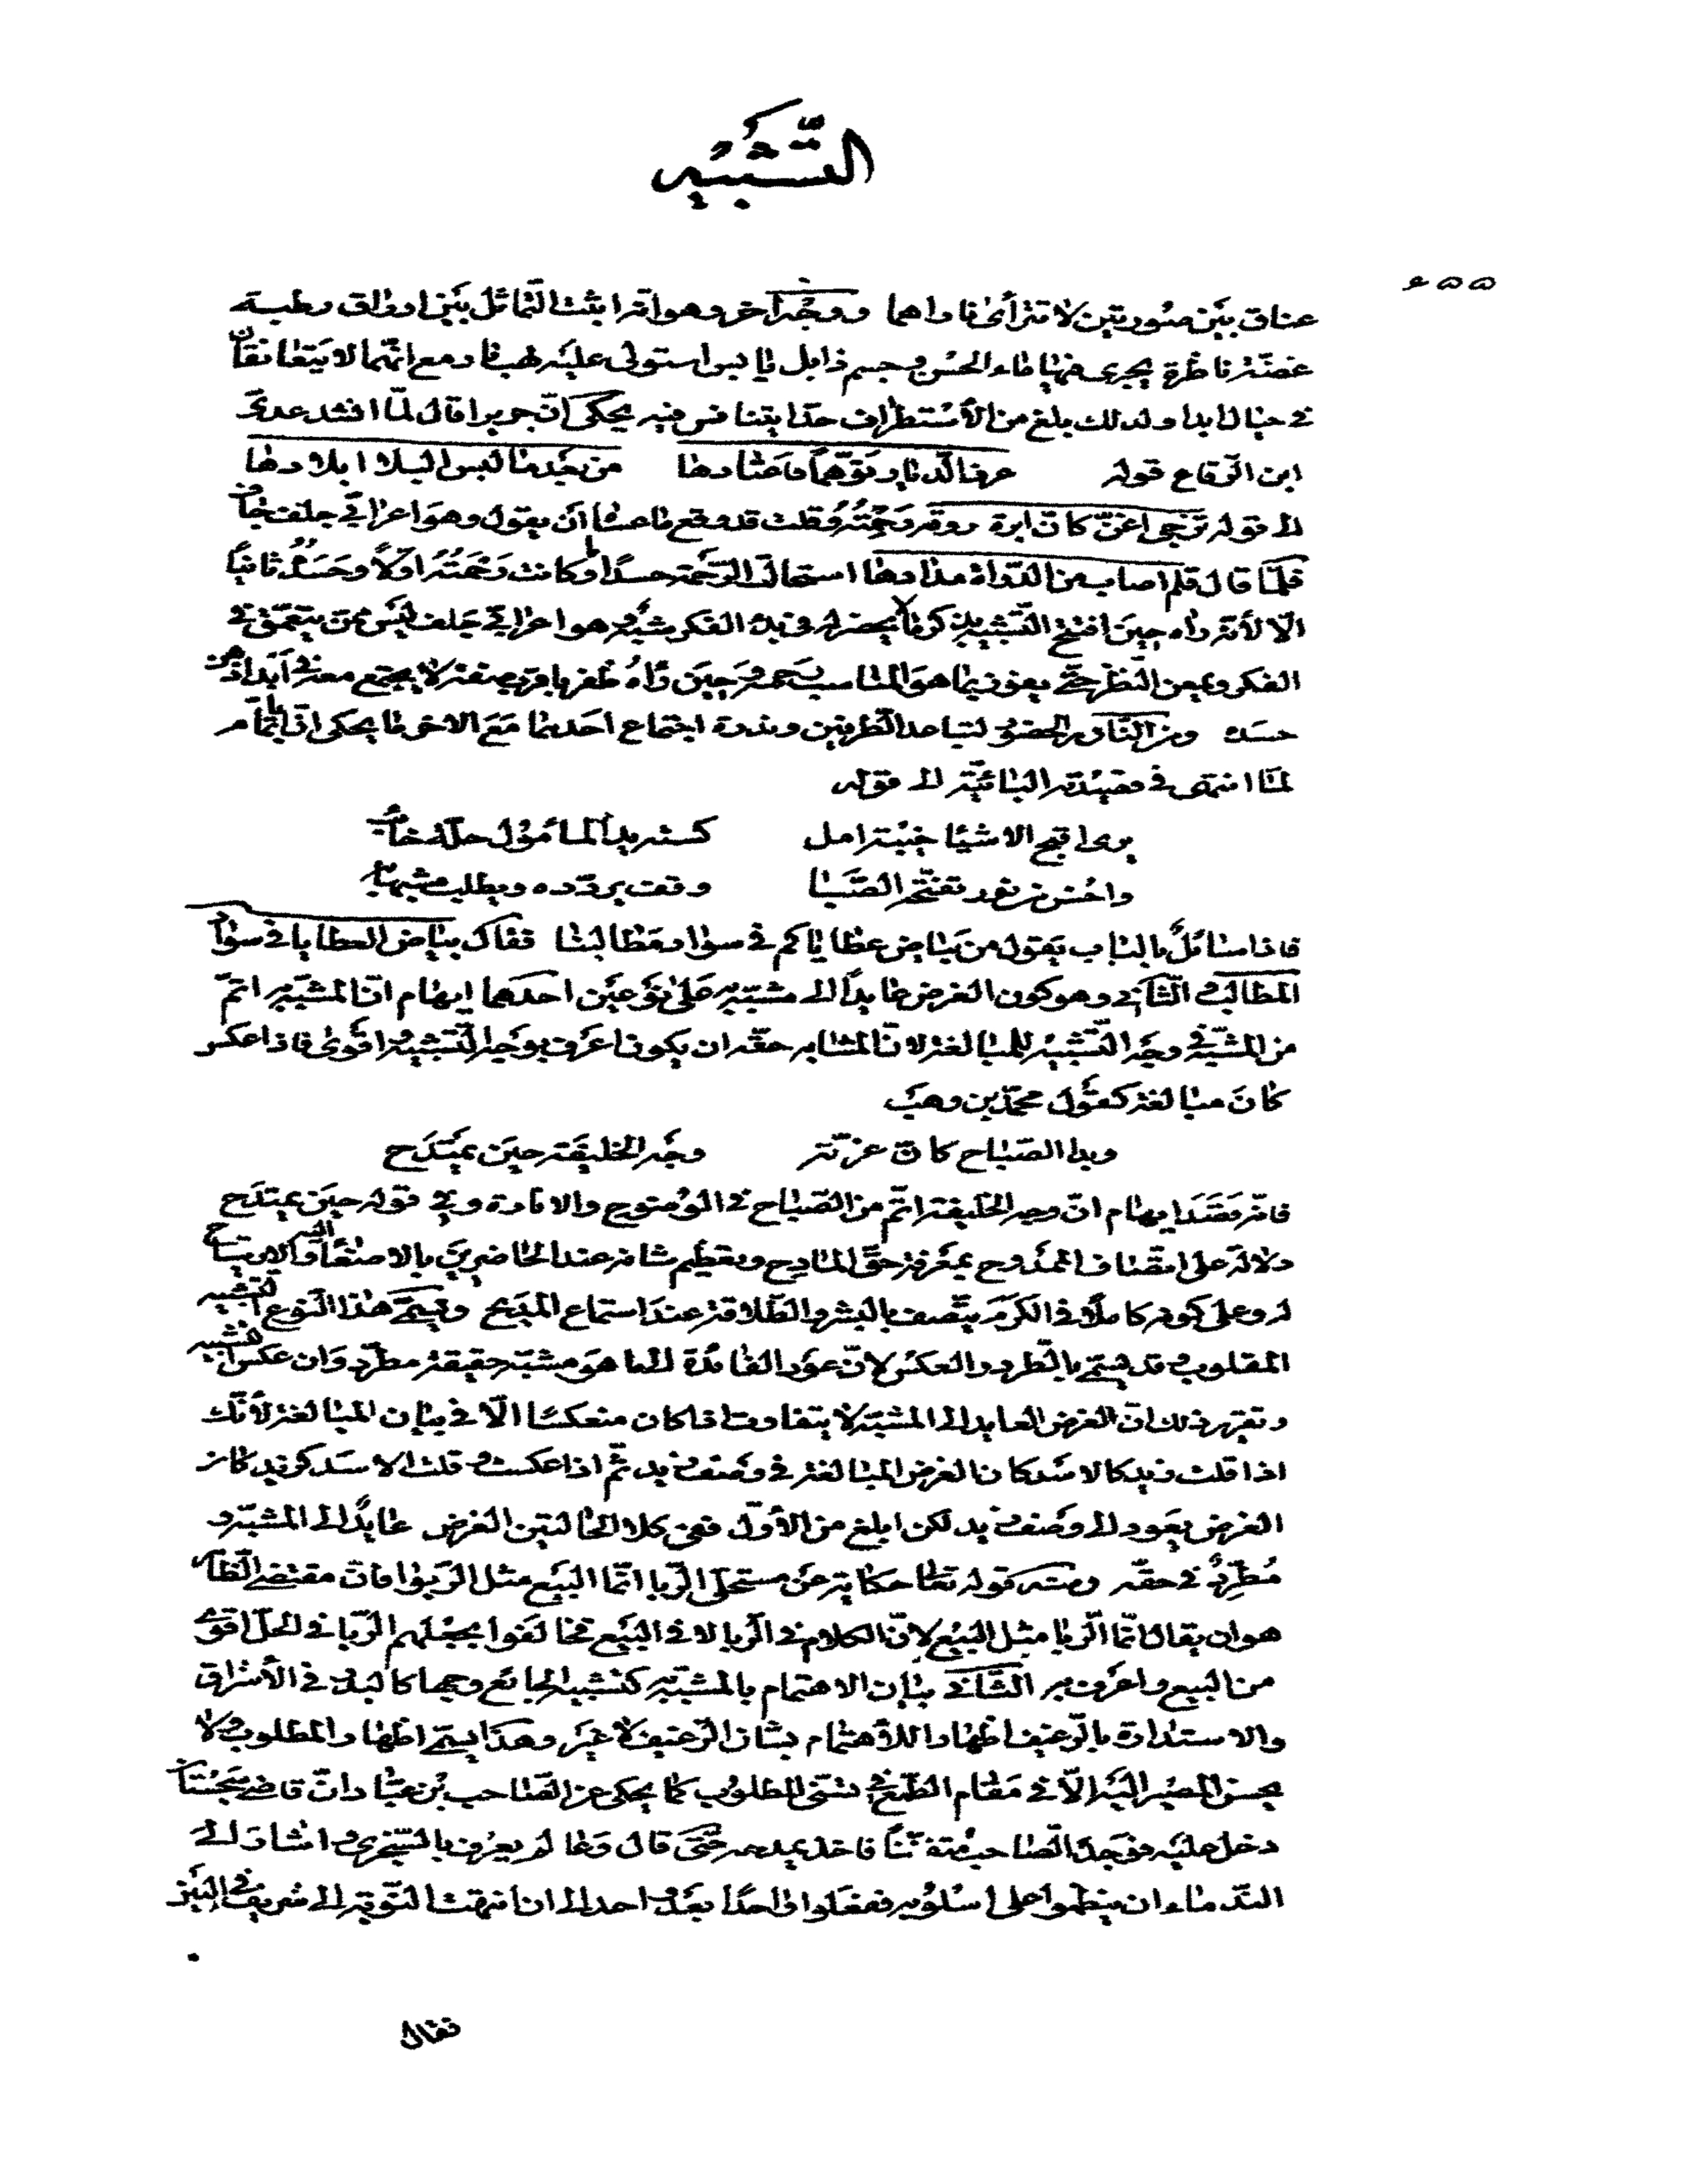 التشبيه
٤٥٥
عناق بين صورتين لا تترأى ناراهما ووجه آخر وهو انه اثبت التماثل بين اوراق رطبة
غضة ناضرة يجرى فيها ماء الحسن وجسم ذابل يابس استولى عليه لهب نار مع انهما لا يتعانقان
في خيال ابدا ولذلك بلغ من الاستطراف حدا يتنافس فيه يحكى ان جريرا قال لما انشد عدى
ابن الرقاع قوله عرف الديار توهما فاعتادها من بعد ما لبس البلا ابلادها
الى قوله تزجى اغن كان ابرة روقه رحمته وقلت قد وقع ما عساه أن يقول وهو اعرابي جلف جاف
فلما قال قلم اصاب من الدواة مدادها استحالت الرحمة حسدا وكانت رحمته اولا وحسده ثانيا
الا لأنه رآه حين افتتح التشبيه بذكر ما لا يحضر له في بدء الفكر شبه وهو اعرابي جلف ليس ممن يتعمق في
الفكر ويمعن النظر حتى يعود بما هو المناسب رحمه وحين رآه ظفر باقرب صفة لا يجتمع معه في ابدا ذهن
حسده ومن النادر الحضور لتباعد الطرفين وندرة اجتماع احدهما مع الاخر ما يحكى ان ابا تمام
لما انتهى في قصيدته البائية الى قوله
يرى اقبح الاشيا خيبة امل كسته يد المأمول حلة خائب
واحسن من نور تفتحه الصبا وقف يردده ويطلب مشبها
فاذا سائل بالباب يقول من بياض عطاياكم في سواد مطالبنا فقال بياض العطايا في سواد
المطالب والثاني وهو كون الغرض عايدا الى مشبه به على نوعين احدهما ايهام ان المشبه به اتم
من المشبه في وجه التشبيه للمبالغة لان المشابه حقه ان يكون اعرف بوجه التشبيه واقوى فاذا عكس
كان مبالغة كقول محمد بن وهيب
وبدا الصباح كان غرته وجه الخليفة حين يمتدح
فانه قصد ايهام ان وجه الخليفة اتم من الصباح في الوضوح والانارة وفي قوله حين يمتدح
دلالة على اتصاف الممدوح بمعرفة حق المادح وتعظيم شانه عند الحاضرين بالاصغاء اليه والارتياح
له وعلى كونه كاملا في الكرم يتصف بالبشر والطلاقة عند استماع المديح ويسمى هذا النوع التشبيه
المقلوب وقد يسمى بالطرد والعكس لان عود الفائدة الى ما هو مشبه حقيقة مطرد وان عكس التشبيه
وتقرير ذلك ان الغرض العايد الى المشبه لا يتفاوت اذا كان منعكسا الا في بيان المبالغة لأنك
اذا قلت زيد كالاسد كان الغرض المبالغة في وصف زيد ثم اذا عكست وقلت الاسد كزيد كان
الغرض يعود الى وصف زيد لكن ابلغ من الأول ففى كلا الحالتين الغرض عايد الى المشبه و
مطرد في حقه ومنه قوله تعالى حكاية عن مستحلى الربا انما البيع مثل الربوا فان مقتضى الظاهر
هو ان يقال انما الربا مثل البيع لان الكلام في الربا لا في البيع فخالفوا بجعلهم الربا في الحل اقوى
من البيع واعرف به الثاني بيان الاهتمام بالمشبه به كتشبيه الجائع وجها كالبدر في الأشراق
والاستدارة بالرغيف اظهارا للاهتمام بشان الرغيف لا غير وهذا يسمى اظهار المطلوب ولا
يحسن المصير اليه الا في مقام الطمع في تسنى المطلوب كما يحكى عن الصاحب بن عباد ان قاضى سجستان
دخل عليه فوجده الصاحب متفننا فاخذ يمدحه حتى قال وعالم يعرف بالسجزى واشار الى
الندماء ان ينظموا على اسلوبه ففعلوا واحدا بعد واحد الى ان انتهت النوبة الى شريف في البين
فقال